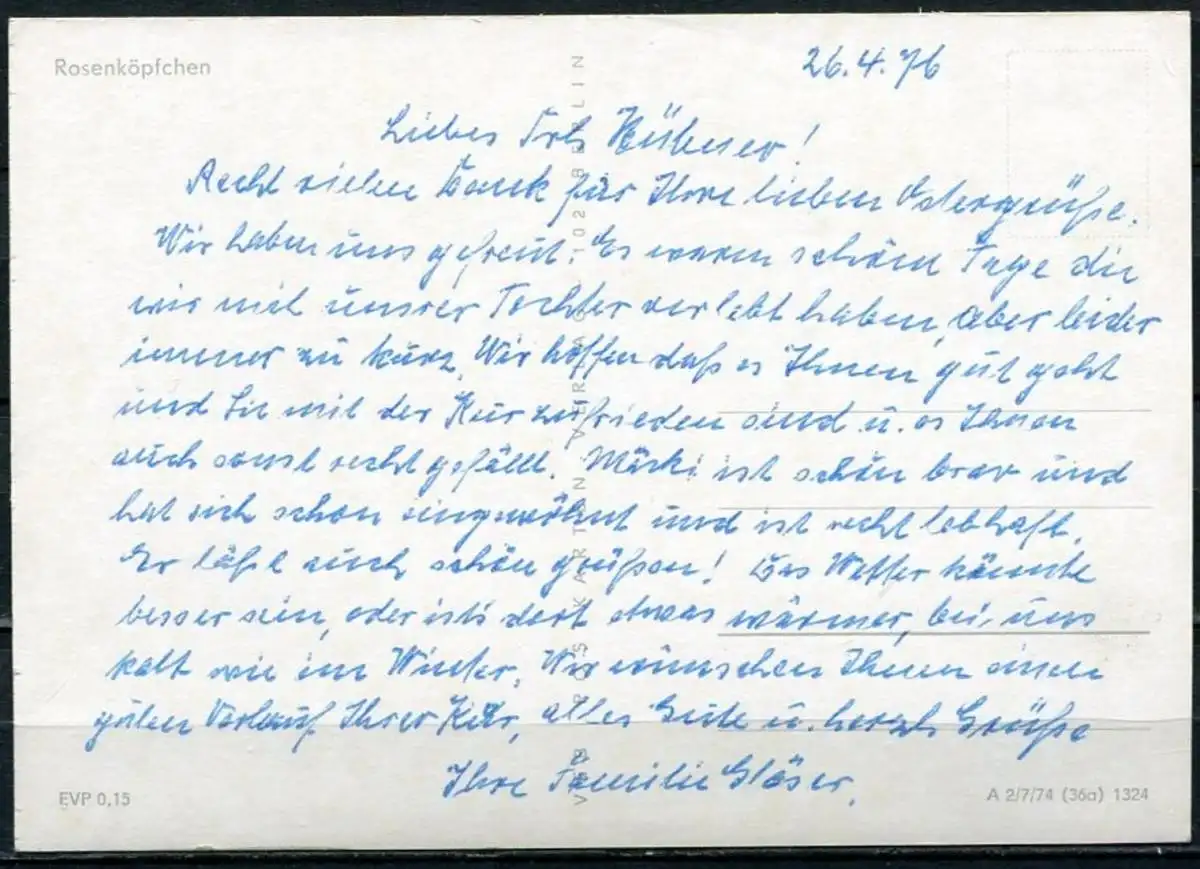 Rosenköpfchen
26.4.76
Liebes Frl. Hübner!
Recht vielen Dank für Ihre lieben Ostergrüße.
Wir haben uns gefreut. Es waren schöne Tage die
wir mit unsrer Tochter verlebt haben, aber leider
immer zu kurz. Wir hoffen daß es Ihnen gut geht
und Sie mit der Kur zufrieden sind u. es Ihnen
auch sonst recht gefällt. Märki ist schön brav und
hat sich schon eingewöhnt und ist recht lebhaft.
Er läßt auch schön grüßen! Das Wetter könnte
besser sein, oder ist's dort etwas wärmer, bei uns
kalt wie im Winter. Wir wünschen Ihnen einen
guten Verlauf Ihrer Kur, alles Gute u. herzl. Grüße
Ihre Familie Gläser.
VEB POSTKARTEN-VERLAG 102 BERLIN
EVP 0,15
A 2/7/74 (36a) 1324